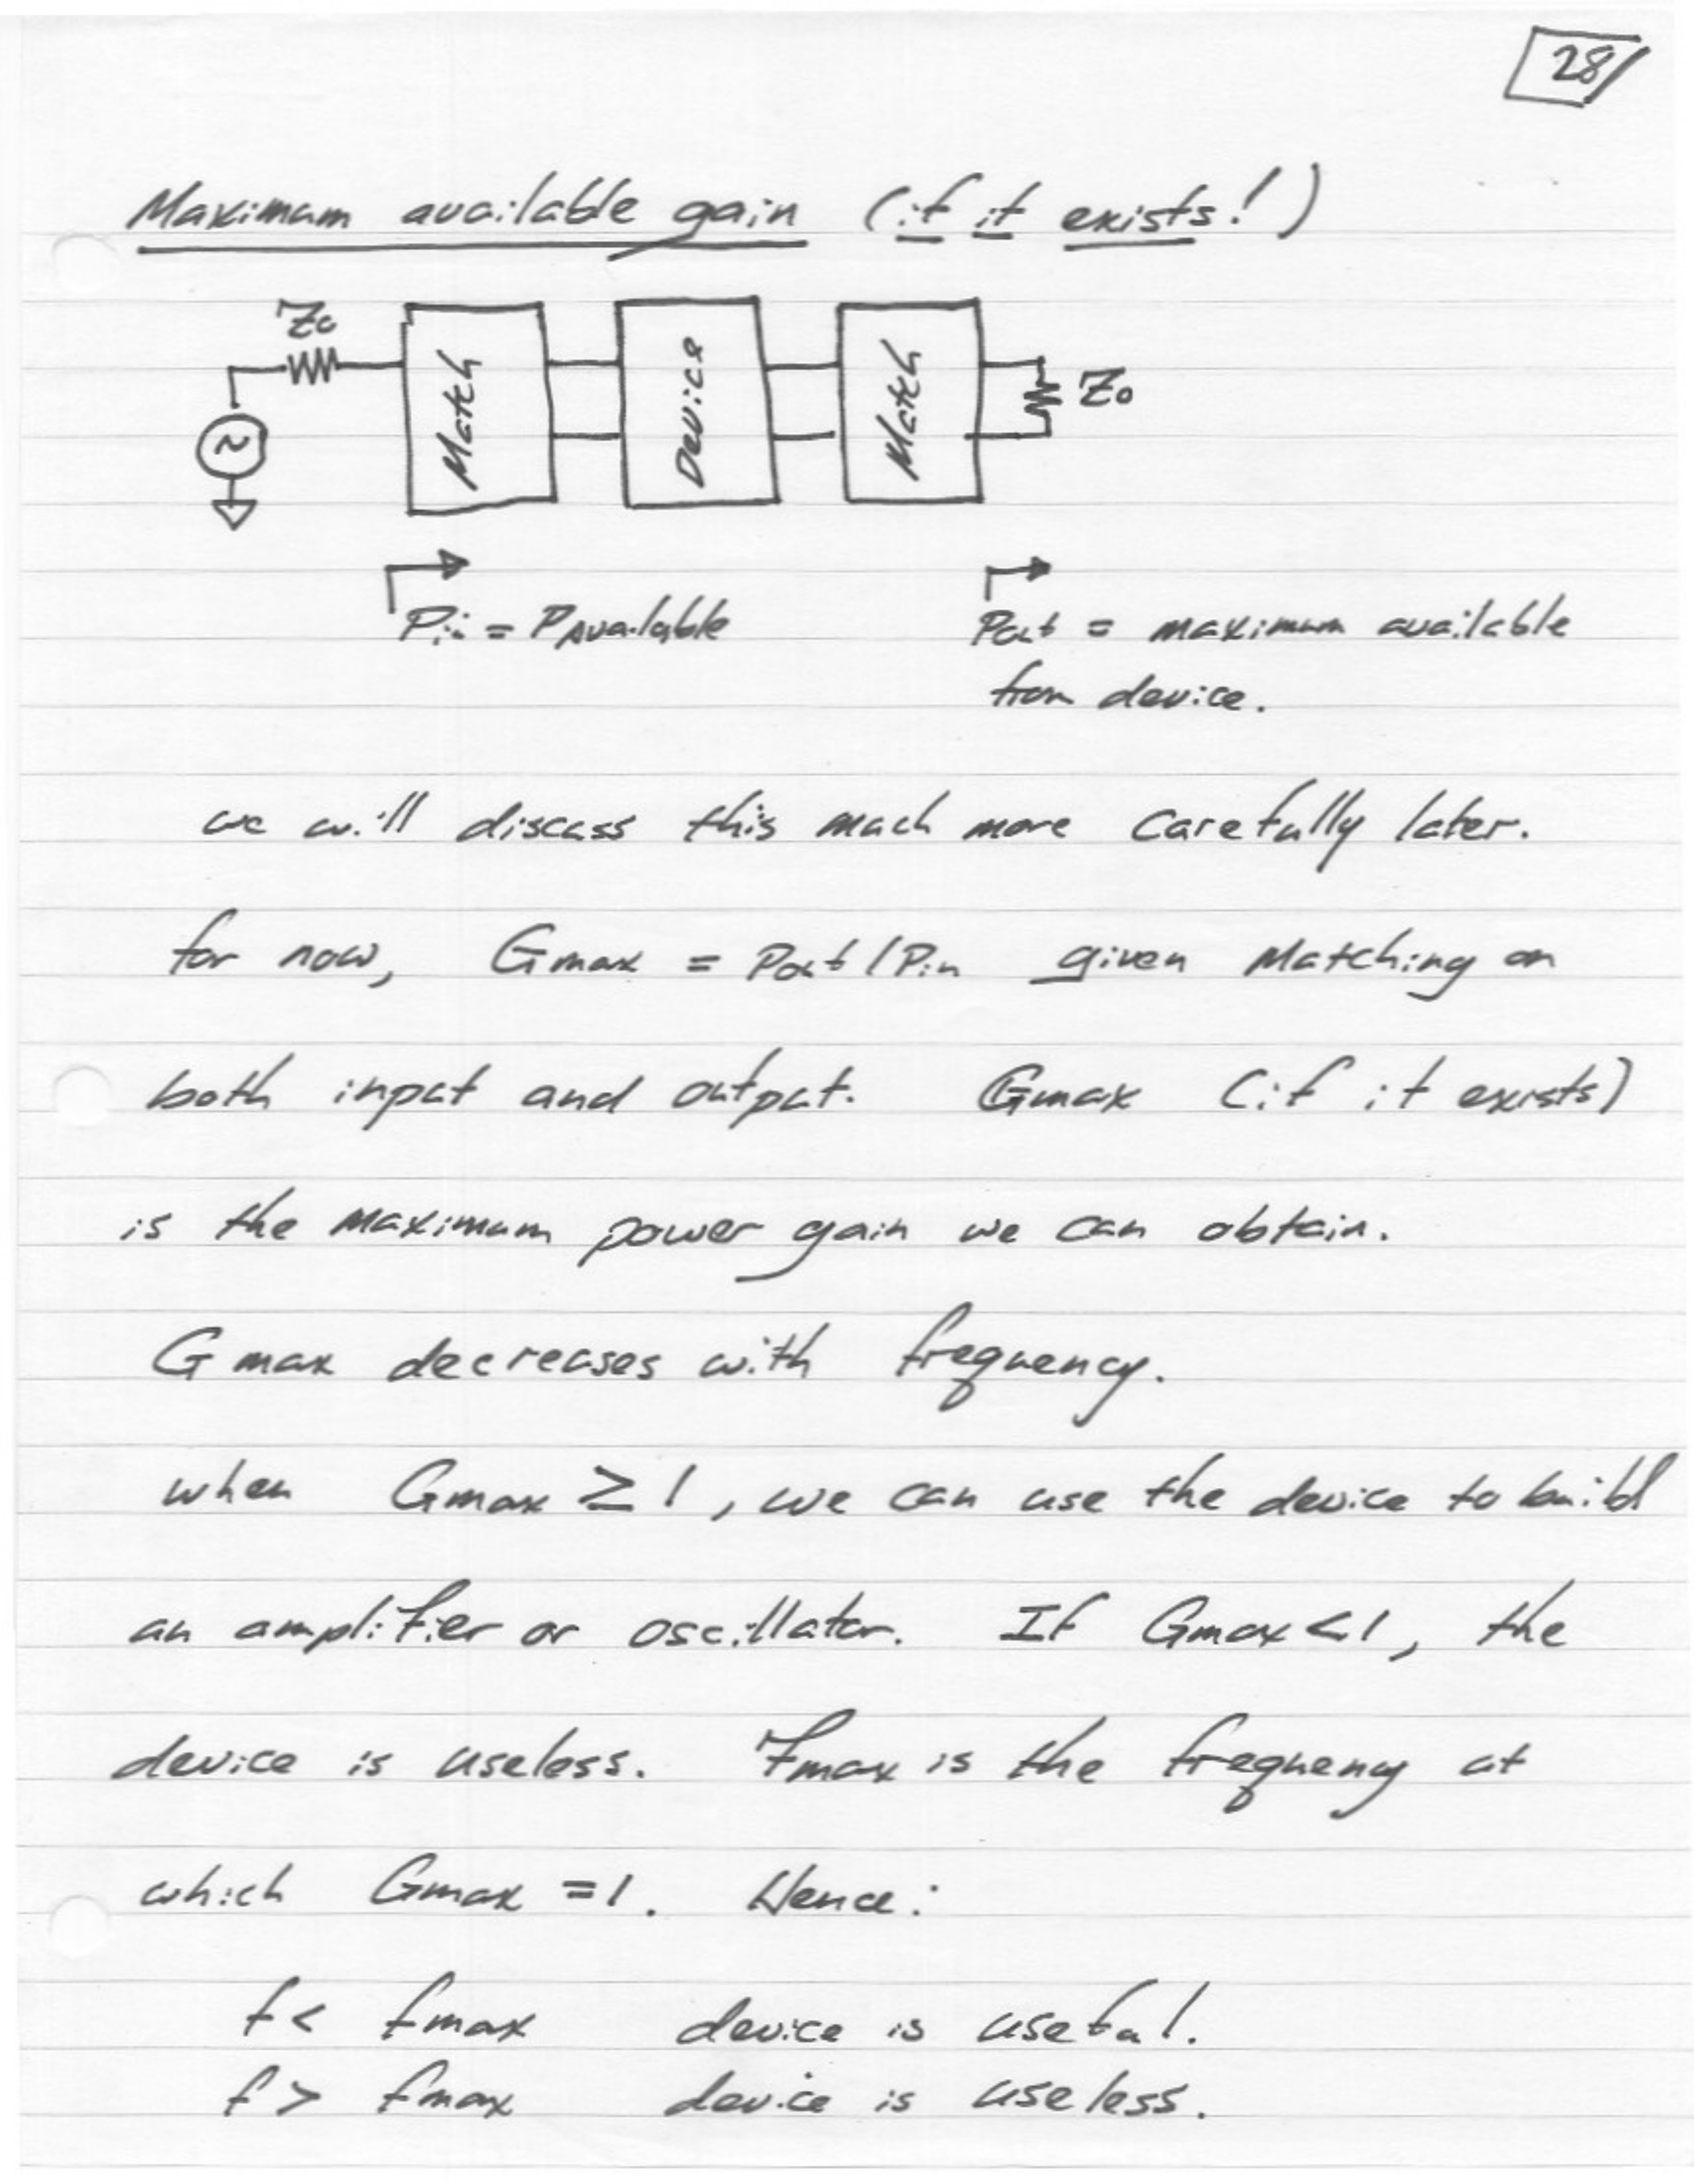 28
Maximum available gain (if it exists!)
Zo
Match
Device
Match
Zo
Pin = PAvailable
Pout = maximum available
from device.
we will discuss this much more carefully later.
for now, Gmax = Pout/Pin given Matching on
both input and output. Gmax (if it exists)
is the maximum power gain we can obtain.
Gmax decreases with frequency.
when Gmax ≥ 1, we can use the device to build
an amplifier or oscillator. If Gmax<1, the
device is useless. Fmax is the frequency at
which Gmax =1. Hence:
f< fmax device is useful.
f> fmax device is useless.